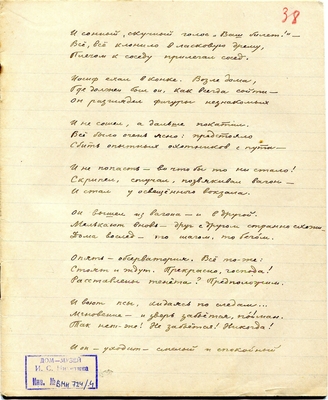 38
И сонный, скучный голос „Ваш билет!" —
Всё, всё клонило в ласковую дрему,
Плечом к соседу прилегал сосед.
Иосиф ехал в конке. Возле дома,
Где должен был он, как всегда сойти —
Он разглядел фигуры незнакомых
И не сошел, а дальше покатил.
Всё было очень ясно: предстояло
Сбить опытных охотников с пути —
И не попасть — во что бы то ни стало!
Скрипел, скучал, позвякивал вагон —
И стал у освещённого вокзала.
Он вышел из вагона — и в другой.
Мелькают вновь — друг с другом странно схожи —
Дома вослед — то шагом, то бегом.
Опять — обсерватория. Всё то-же:
Стоят и ждут. Прекрасно, господа!
Расставлены тенёта? Предположим.
И воют псы, кидаясь по следам...
Мгновение — и зверь забьётся, пойман.
Так нет-же! Не забьётся! Никогда!
И он — уходит — смелый и спокойный
ДОМ-МУЗЕЙ
Инв. №